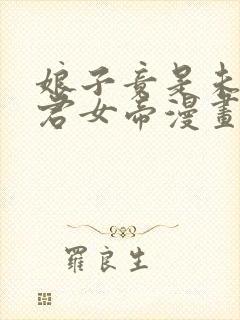 娘子竟是未
君女帝漫畫
羅良生